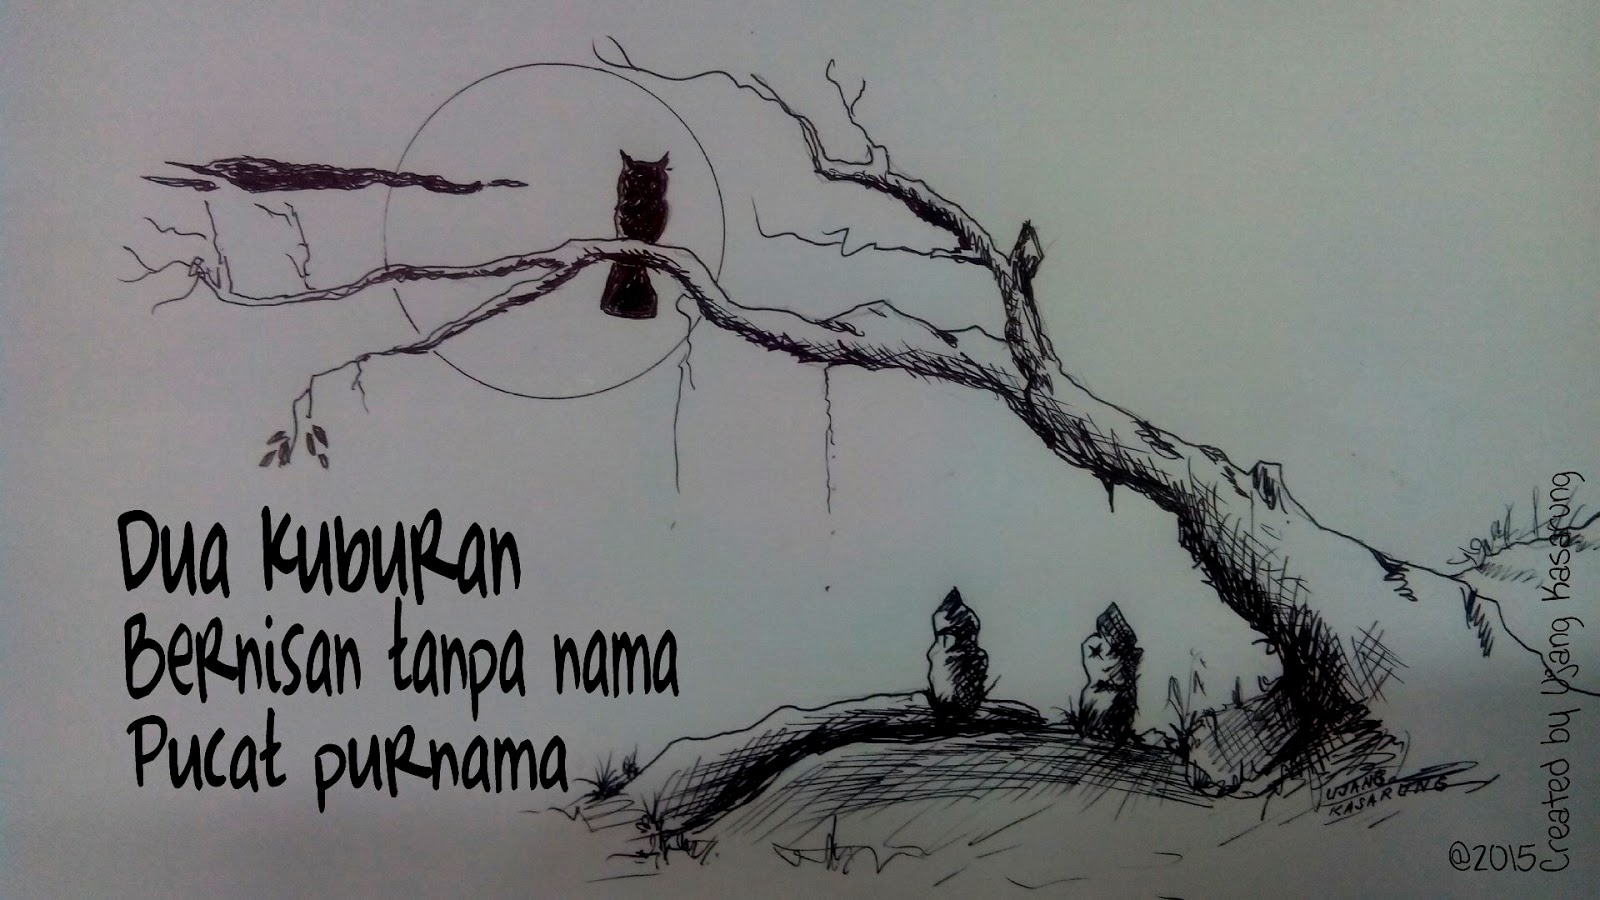 Dua Kuburan
Bernisan tanpa nama
Pucat purnama
UJANG
KASARUNG
@2015
Created by Ujang Kasarung